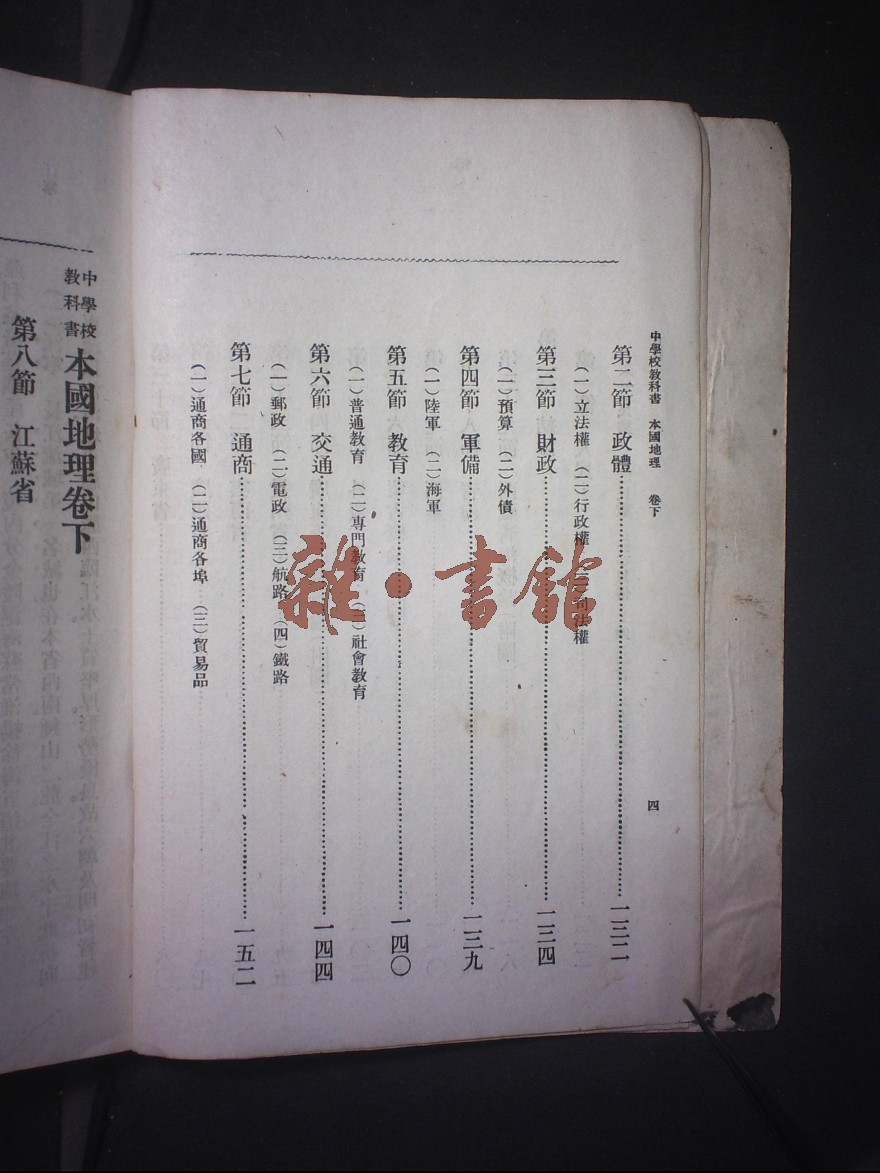 中學校教科書 本國地理 卷下
四
第二節 政體 一三二
(一)立法權 (二)行政權 (三)司法權
第三節 財政 一三四
(一)預算 (二)外債
第四節 軍備 一三九
(一)陸軍 (二)海軍
第五節 教育 一四〇
(一)普通教育 (二)專門教育 (三)社會教育
第六節 交通 一四四
(一)郵政 (二)電政 (三)航路 (四)鐵路
第七節 通商 一五二
(一)通商各國 (二)通商各埠 (三)貿易品
中學校教科書 本國地理卷下
第八節 江蘇省
雜·書館